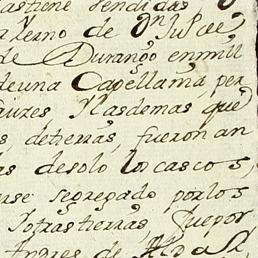 astiene vendidas, O
alerno de Dn Jus de
de Durango en mill
de una Capellania per
auzes, Y las demas que
s, de tierras, fueron an
as de solo los cascos,
erse segregado por los
Y otras tierras, que por
Andres de